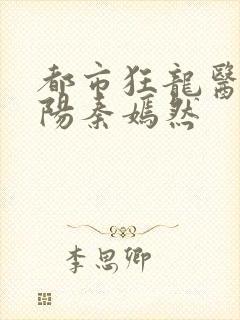 都市狂龍醫
陽秦嫣然
李思卿